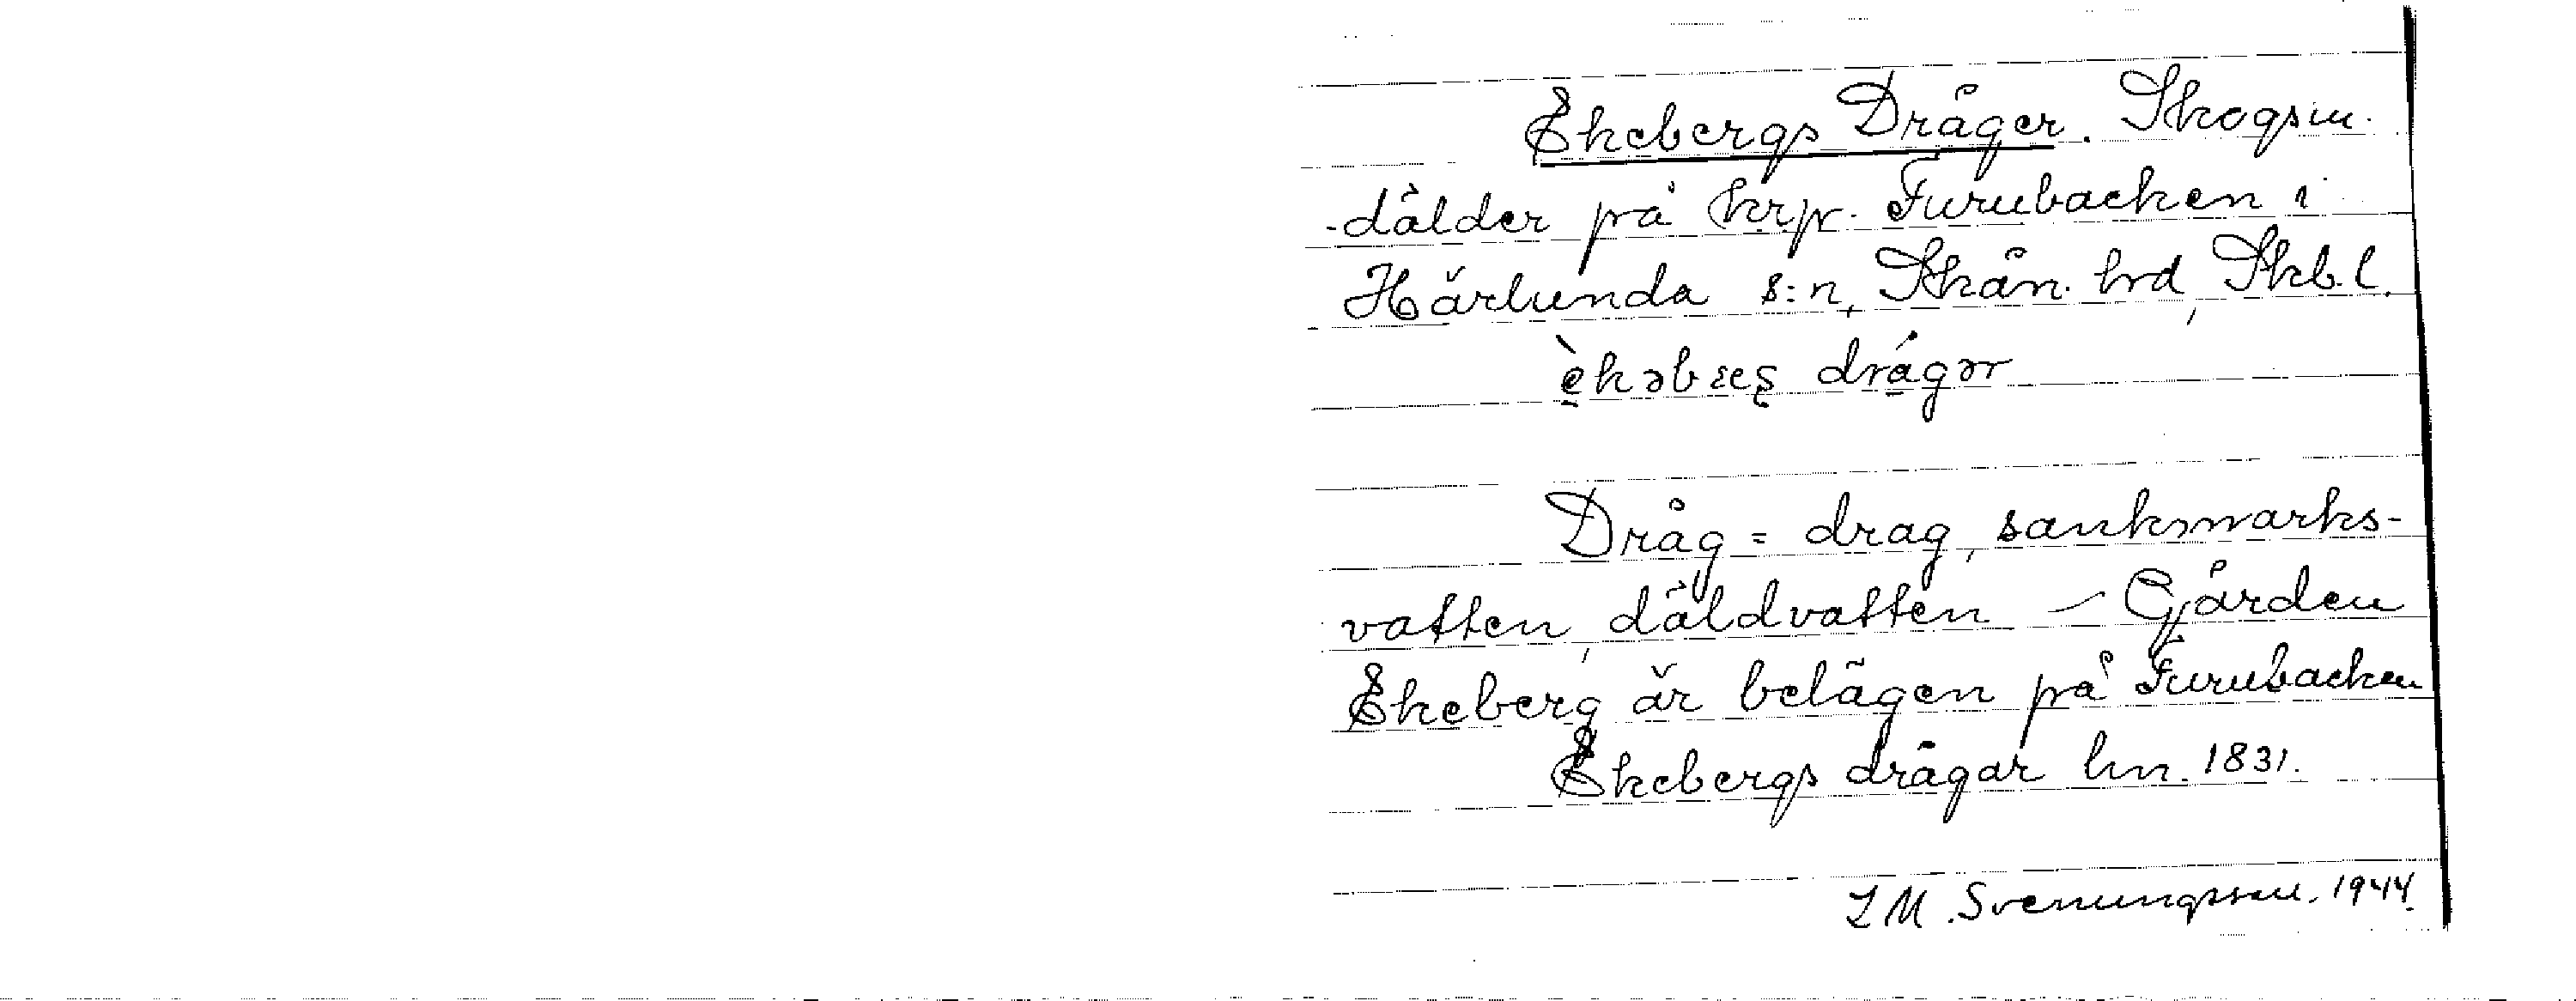 Ekebergs Dråger. Skogsm.
-dälder på krp. Furubacken i
Härlunda s:n, Skån. hrd, Skb.l.
drågər
Dråg = drag, sankmarks-
vatten, däldvatten – Gården
Ekeberg är belägen på Furubacken
Ekebergs drågar hm. 1831.
S M. Svenungsson. 1944.